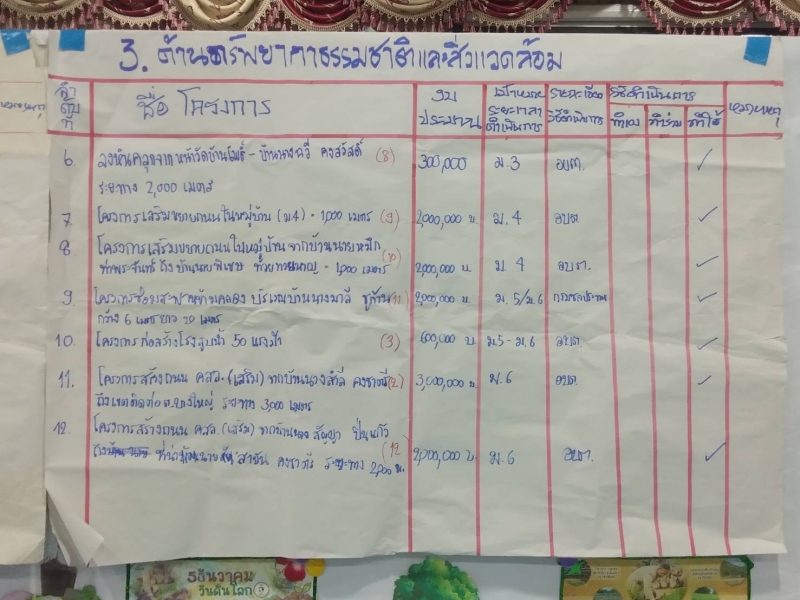 3. ด้านทรัพยากรธรรมชาติและสิ่งแวดล้อม
ลำดับที่ ชื่อ โครงการ งบประมาณ เป้าหมาย ระยะเวลาดำเนินการ รายละเอียดวิธีดำเนินการ วิธีดำเนินการ ทำเอง ทำร่วม ทำให้ หมายเหตุ
6. ลงหินคลุกจากหน้าวัดบ้านโพธิ์ - บ้านนางฉวี คงสวัสดิ์ (8) 300,000 ม.3 อบต. ✓
ระยะทาง 2,000 เมตร
7. โครงการเสริมขยายถนนในหมู่บ้าน (ม.4) - 1,000 เมตร (9) 2,000,000 บ. ม.4 อบต ✓
8 โครงการเสริมขยายถนนในหมู่บ้าน จากบ้านนายหมึก (10)
ถึง บ้านนายพิเชษ - 1,000 เมตร 2,000,000 บ. ม 4 อบต. ✓
9. โครงการซ่อมสะพานข้ามคลอง บริเวณบ้านนางมาลี (11) 2,000,000 บ. ม. 5/ม.6 กรมชลประทาน ✓
กว้าง 6 เมตร ยาว 20 เมตร
10. โครงการก่อสร้างโรงสูบน้ำ 50 แรงม้า (3) 600,000 บ ม.5 - ม.6 อบต. ✓
11. โครงการสร้างถนน คสล. (เสริม) จากบ้านนางสำลี (2) 3,000,000 บ. ม.6 อบต. ✓
ถึงเขตติดต่อ ระยะทาง 3,000 เมตร
12. โครงการสร้างถนน คสล. (เสริม) จากบ้านนาง สัญญา ปิ่นแก้ว
(12 ระยะทาง 2,000 ม. 2,000,000 บ ม.6 อบต. ✓
5 ธันวาคม
วันดินโลก